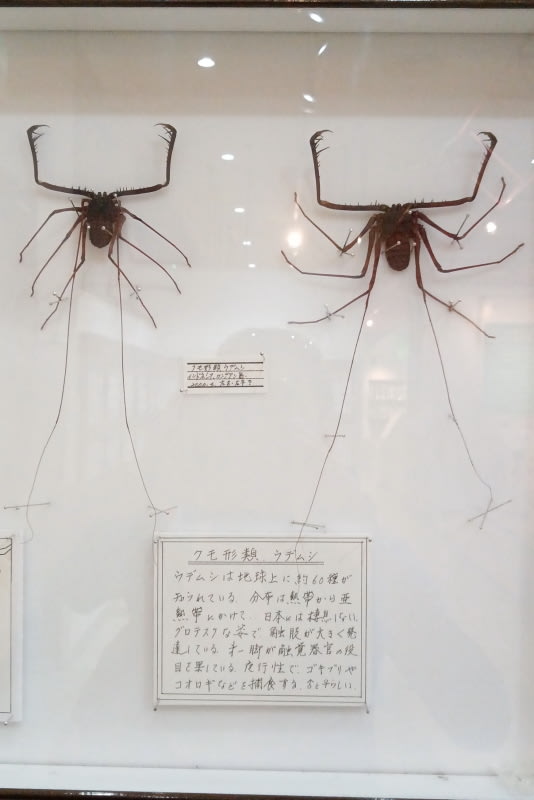 クモ形類 ウデムシ
クモ形類 ウデムシ
ウデムシは地球上に約60種が
知られている。分布は熱帯から亜
熱帯にかけて。日本には棲息しない
グロテスクな姿で触肢が大きく発
達している。第一脚が触覚器官の役
目を果している。夜行性で、ゴキブリや
コオロギなどを捕食する。